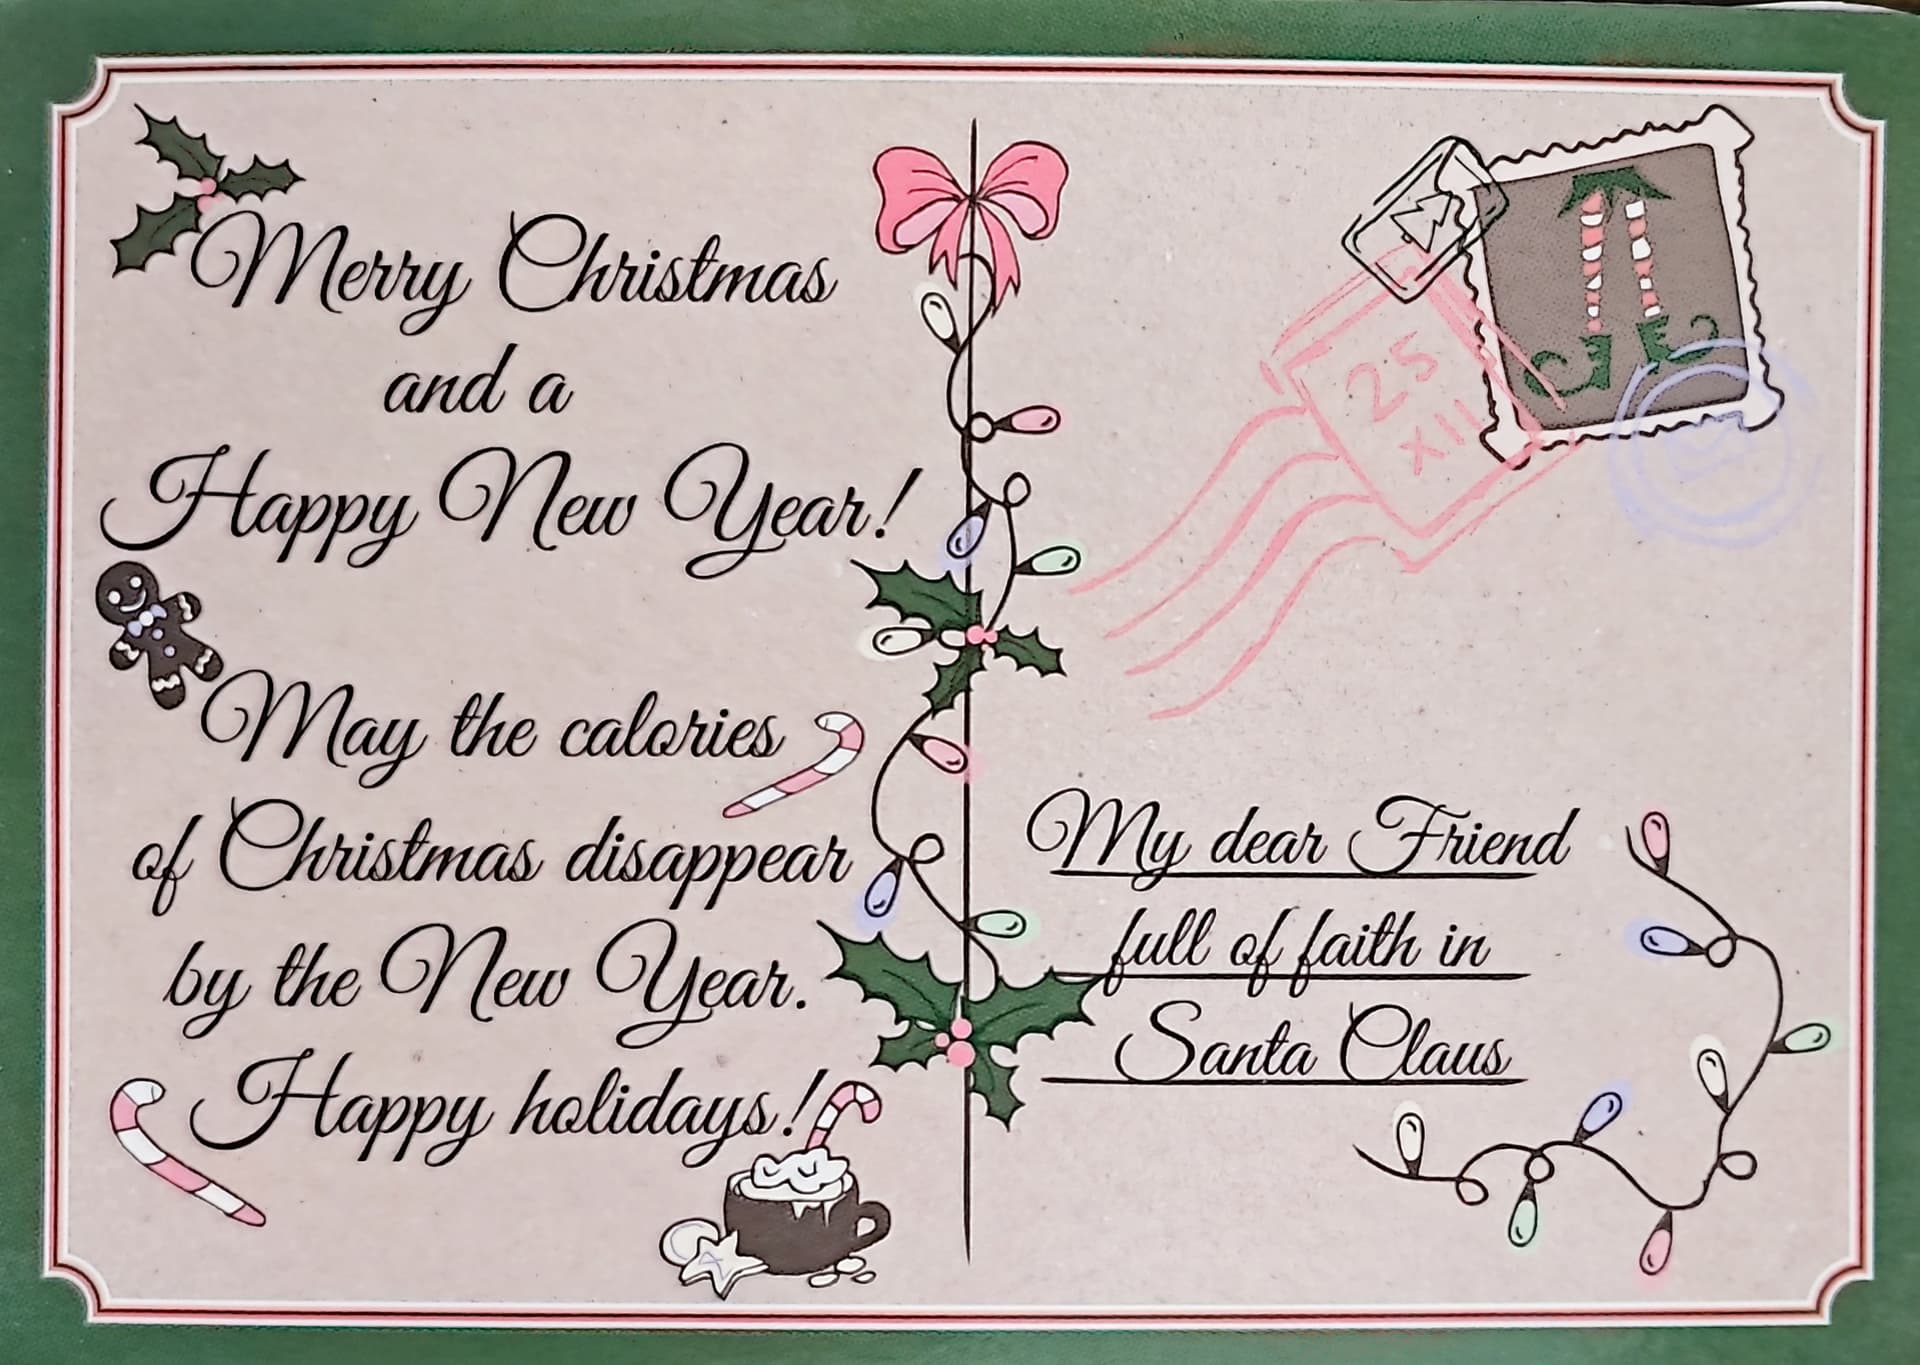 Merry Christmas
and a
Happy New Year!
May the calories
of Christmas disappear
by the New Year.
Happy holidays!
25
XII
My dear Friend
full of faith in
Santa Claus